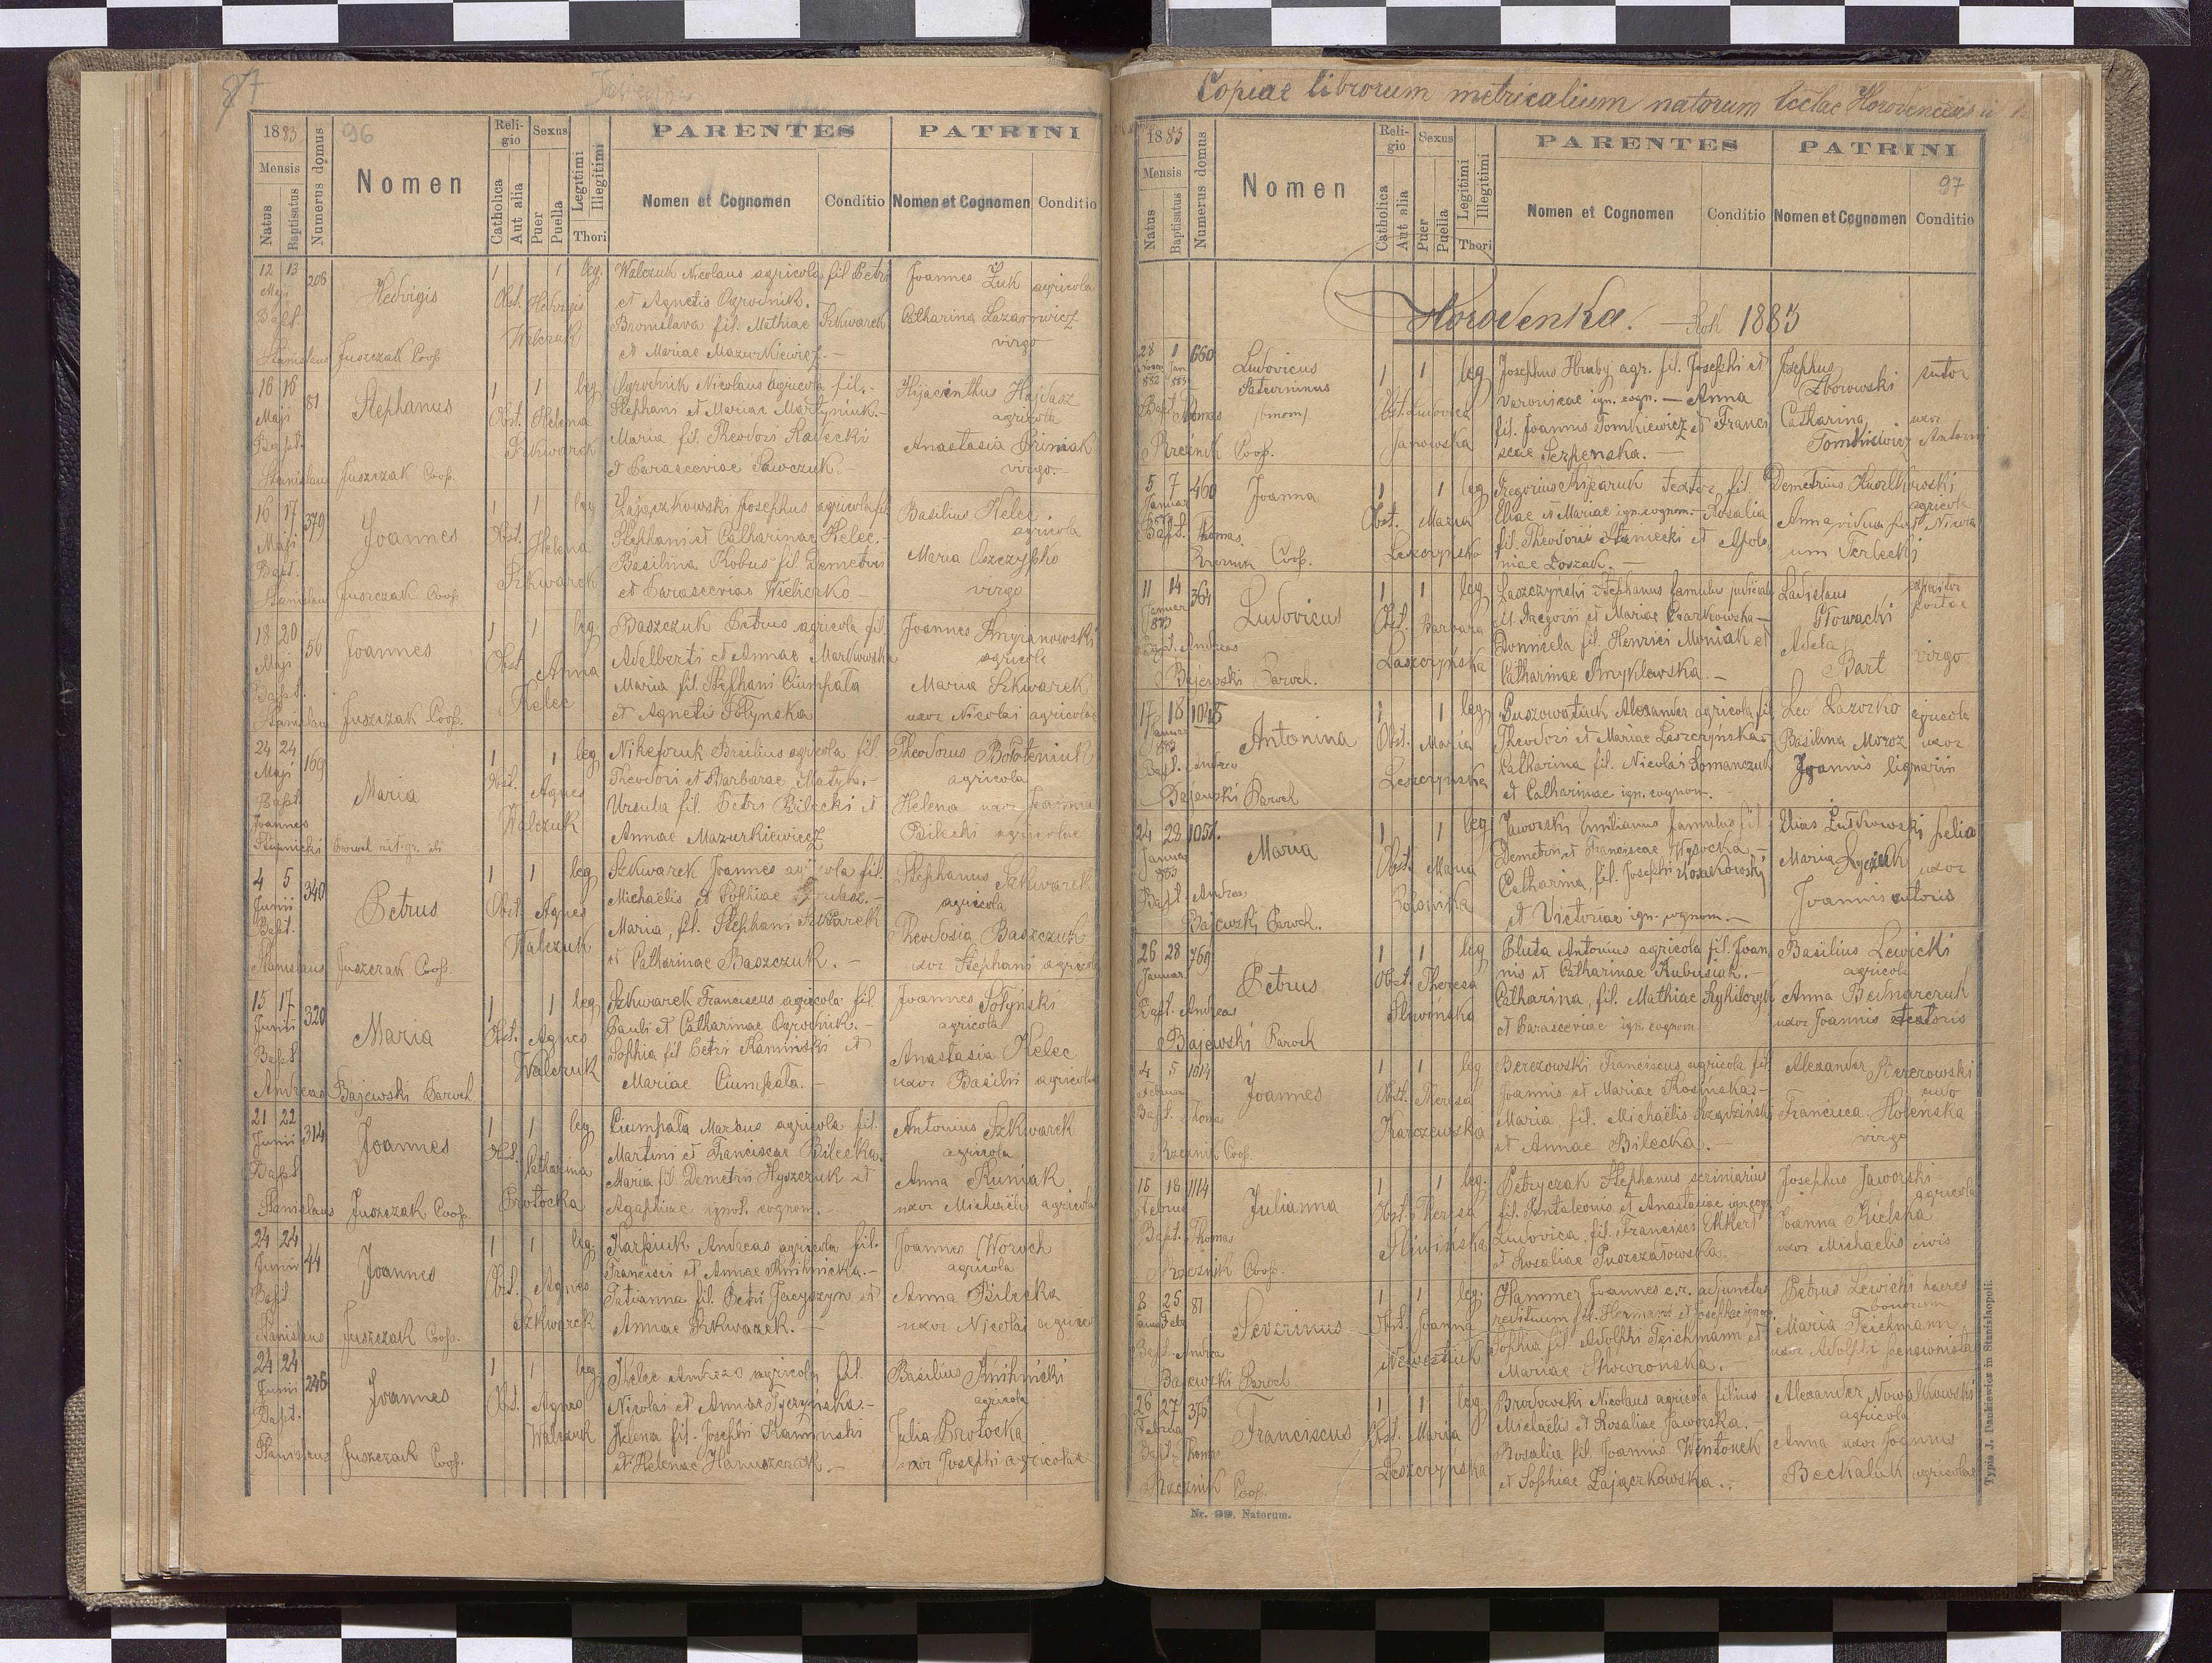 87
1883
96
Mensis
Natus
Baptisatus
Numerus domus
Nomen
Religio
Catholica
Aut alia
Sexus
Puer
Puella
Legitimi
Illegitimi
Thori
PARENTES
Nomen et Cognomen
Conditio
PATRINI
Nomen et Cognomen
Conditio
12 13 206 Hedvigis 1 1 leg. Walczuk Nicolaus agricola fil Petri Joannes Żuk agricola
Maji Obst. Hedvigis et Agnetis Ogrodnik.
Bapt Walczuk Bronislava fil. Mathiae Szkwarek Catharina Lazarowicz
Stanislaus Juszczak Coop. et Mariae Mazurkiewicz.- virgo
16 16 81 Stephanus 1 1 leg Ogrodnik Nicolaus agricola fil.- Hijacinthus Hajdasz
Maji Obst. Helena Stephani et Mariae Martyniuk.- agricola
Bapt. Szkwarek Maria fil. Theodori Radecki Anastasia
Stanislaus Juszczak Coop. et Parasceviae Sawczuk.- virgo.-
16 17 379 Joannes 1 1 leg Zajączkowski Josephus agricola fil Basilius Kelec
Maji Obst. Helena Stephani et Catharinae Kelec.- agricola
Bapt. Szkwarek Basilina Kobus fil. Demetrii Maria
Stanislaus Juszczak Coop. et Parascevias Wieliczko- virgo
18 20 56 Joannes 1 1 leg. Baszczuk Petrus agricola fil. Joannes
Maji Obst. Anna Adalberti et Annae Markowska agricola
Bapt. Kelec Maria fil. Stephani Ciumpała Maria Szkwarek
Stanislaus Juszczak Coop. et Agnetis Sołynska uxor Nicolai agricolae
24 24 169 Maria 1 1 leg Nikeforuk Basilius agricola fil. Theodorus
Maji Obst. Agnes Theodori et Barbarae Matyk.- agricola
Bapt. Walczuk Ursula fil. Petri Bilecki et Helena uxor Joannis
Joannes Annae Mazurkiewicz Bilecki agricolae
4 5 340 Petrus 1 1 leg Szkwarek Joannes agricola fil. Stephanus Szkwarek
Junii Obst. Agnes Michaëlis et Sophiae agricola
Bapt. Walczuk Maria, fil. Stephani Szkwarek Theodosia Baszczuk
Stanislaus Juszczak Coop. et Catharinae Baszczuk.- uxor Stephani agricolae
15 17 320 Maria 1 1 leg. Szkwarek Franciscus agricola fil. Joannes Sołyński
Junii Obst. Agnes Pauli et Catharinae Ogrodnik.- agricola
Bapt Walczuk Sophia fil Petri Kaminski et Anastasia Kelec
Andreas Bajewski Paroch. Mariae Ciumpała.- uxor Basilii agricolae
21 22 314 Joannes 1 1 leg Ciumpała Marcus agricola fil. Antonius Szkwarek
Junii Obst. Catharina Martini et Franciscae Bilecka. agricola
Bapt Protocka Maria fil. Demetrii Hyszczuk et Anna Kuniak
Stanislaus Juszczak Coop. Agaphiae ignot. cognom.- uxor Michaëlis agricolae
24 24 44 Joannes 1 1 leg Karpiuk Andreas agricola fil. Joannes Woroch
Junii Obst. Agnes Francisci et Annae agricola
Bapt Szkwarek Tatianna fil. Petri et Anna Bilecka
Stanislaus Juszczak Coop. Annae Szkwarek.- uxor Nicolai agricolae
24 24 246 Joannes 1 1 leg Kelec Andreas agricola fil. Basilius
Junii Obst. Agnes Nicolai et Annae agricola
Bapt. Walczuk Helena fil. Josephi Kaminski Julia Protocka
Stanislaus Juszczak Coop. et Helenae Hanuszczak.- uxor Josephi agricolae
Copiae librorum metricalium natorum Eccłae Horodencensis
1883
Mensis
Natus
Baptisatus
Numerus domus
Nomen
Religio
Catholica
Aut alia
Sexus
Puer
Puella
Legitimi
Illegitimi
Thori
PARENTES
Nomen et Cognomen
Conditio
PATRINI
97
Nomen et Cognomen
Conditio
Horodenka. - Rok 1883
28 1 660 Ludovicus 1 1 leg Josephus Hruby agr. fil. Josephi et Josephus sutor
Saturninus Varoniscae ign. cogn.- Anna Zborowski
Bapt. Thomas Obst. Ludovica fil. Joannis Tomkiewicz et Franci Catharina uxor
Rzeźnik Coop. Janowska scae Serpenska.- Tomkiewicz Antonii
5 7 460 Joanna 1 1 leg Gregorius textor fil. Demetrius
Januar Obst. Maria Eliae et Mariae ign. cognom.- Rosalia agricola
Bapt. Thomas Leszczynska fil. Theodori Staniecki et Apolo, Anna vidua post
Rzeznik Coop. niae Łoszak.- um Terlecki
11 14 364 Ludovicus 1 1 leg Laszczyński Stephanus famulus judicialis Ladislaus
Januar 883 Obst. Barbara fil. Gregorii et Mariae Czarkowska- Głowacki
Bapt. Andreas Laszczyńska Donnicela fil. Henrici Moniak et Adela virgo
Bajewski Paroch. Catharinae Smyklewska.- Bart
17 18 1045 Antonina 1 1 leg Puszowatiuk Alexander agricola fil Leo Lazorko agricola
Januar 883 Obst. Maria Theodori et Mariae Leszczynska- Basilina Moroz uxor
Bapt. Andreas Leszczynska Catharina fil. Nicolai Romanczuk Joannis lignarii
Bajewski Paroch et Catharinae ign. cognom.-
24 28 1057. Maria 1 1 leg Jaworski Emilianus famulus fil Elias Lutkowski
Januar 883 Obst. Maria Demetrii et Franciscae Wysocka.- Maria uxor
Bapt. Andreas Catharina, fil. Josephi Kosakowski Joannis sutoris
Bajewski Paroch. et Victoriae ign. cognom.-
26 28 769 Petrus 1 1 leg Pluta Antonius agricola fil. Joan, Basilius Lewicki
Januar Obst. Theresa nis et Catharinae Kubusiak.- agricola
Bapt. Andreas Sliwińska Catharina, fil. Mathiae Anna Bednarczuk
Bajewski Paroch et Parasceviae ign cognom uxor Joannis textoris
4 5 1014 Joannes 1 1 leg Berezowski Franciscus agricola fil. Alexander Berezowski
Februar Obst. Theresa Joannis et Mariae Kosińska.-
Bapt. Thomas Karczewska Maria, fil. Michaëlis Francisca Holenska
Rzeznik Coop. et Annae Bilecka.- virgo
15 18 1114 Julianna 1 1 leg. Petryczak Stephanus scriniarius Josephus Jaworski
Februar Obst. Theresa fil. Pantaleonis et Anastasiae ign cogn agricola
Bapt. Thomas Sliwinska Ludovica, fil. Francisci Ekkert Joanna Kielska
Rzeznik Coop. et Rosaliae Puszczałowska. uxor Michaelis civis
8 25 81 Severinus 1 1 leg. Hammer Joannes c.r. adjunctus Petrus Lewicki haeres
Obst. Joanna redituum fil. Hermani et Josephae bonorum
Bapt. Andrea Sophia fil. Adolphi Teichmann et Maria Teichmann
Bajewski Paroch. Mariae Skowronska.- uxor Adolphi pensionistae
26 27 375 Franciscus 1 1 leg. Brodowski Nicolaus agricola filius Alexander Nowalkowski
Februar Obst. Maria Michaelis et Rosaliae Jaworska.- agricola
Bapt. Thomas Leszczyńska Rosalia fil. Joannis Wintonek Anna uxor Joannis
Rzeznik Coop. et Sophiae Zajączkowska.. Beckaluk agricolae
Nr. 99. Natorum.
Typis J. Dankiewicz in Stanislaopoli.